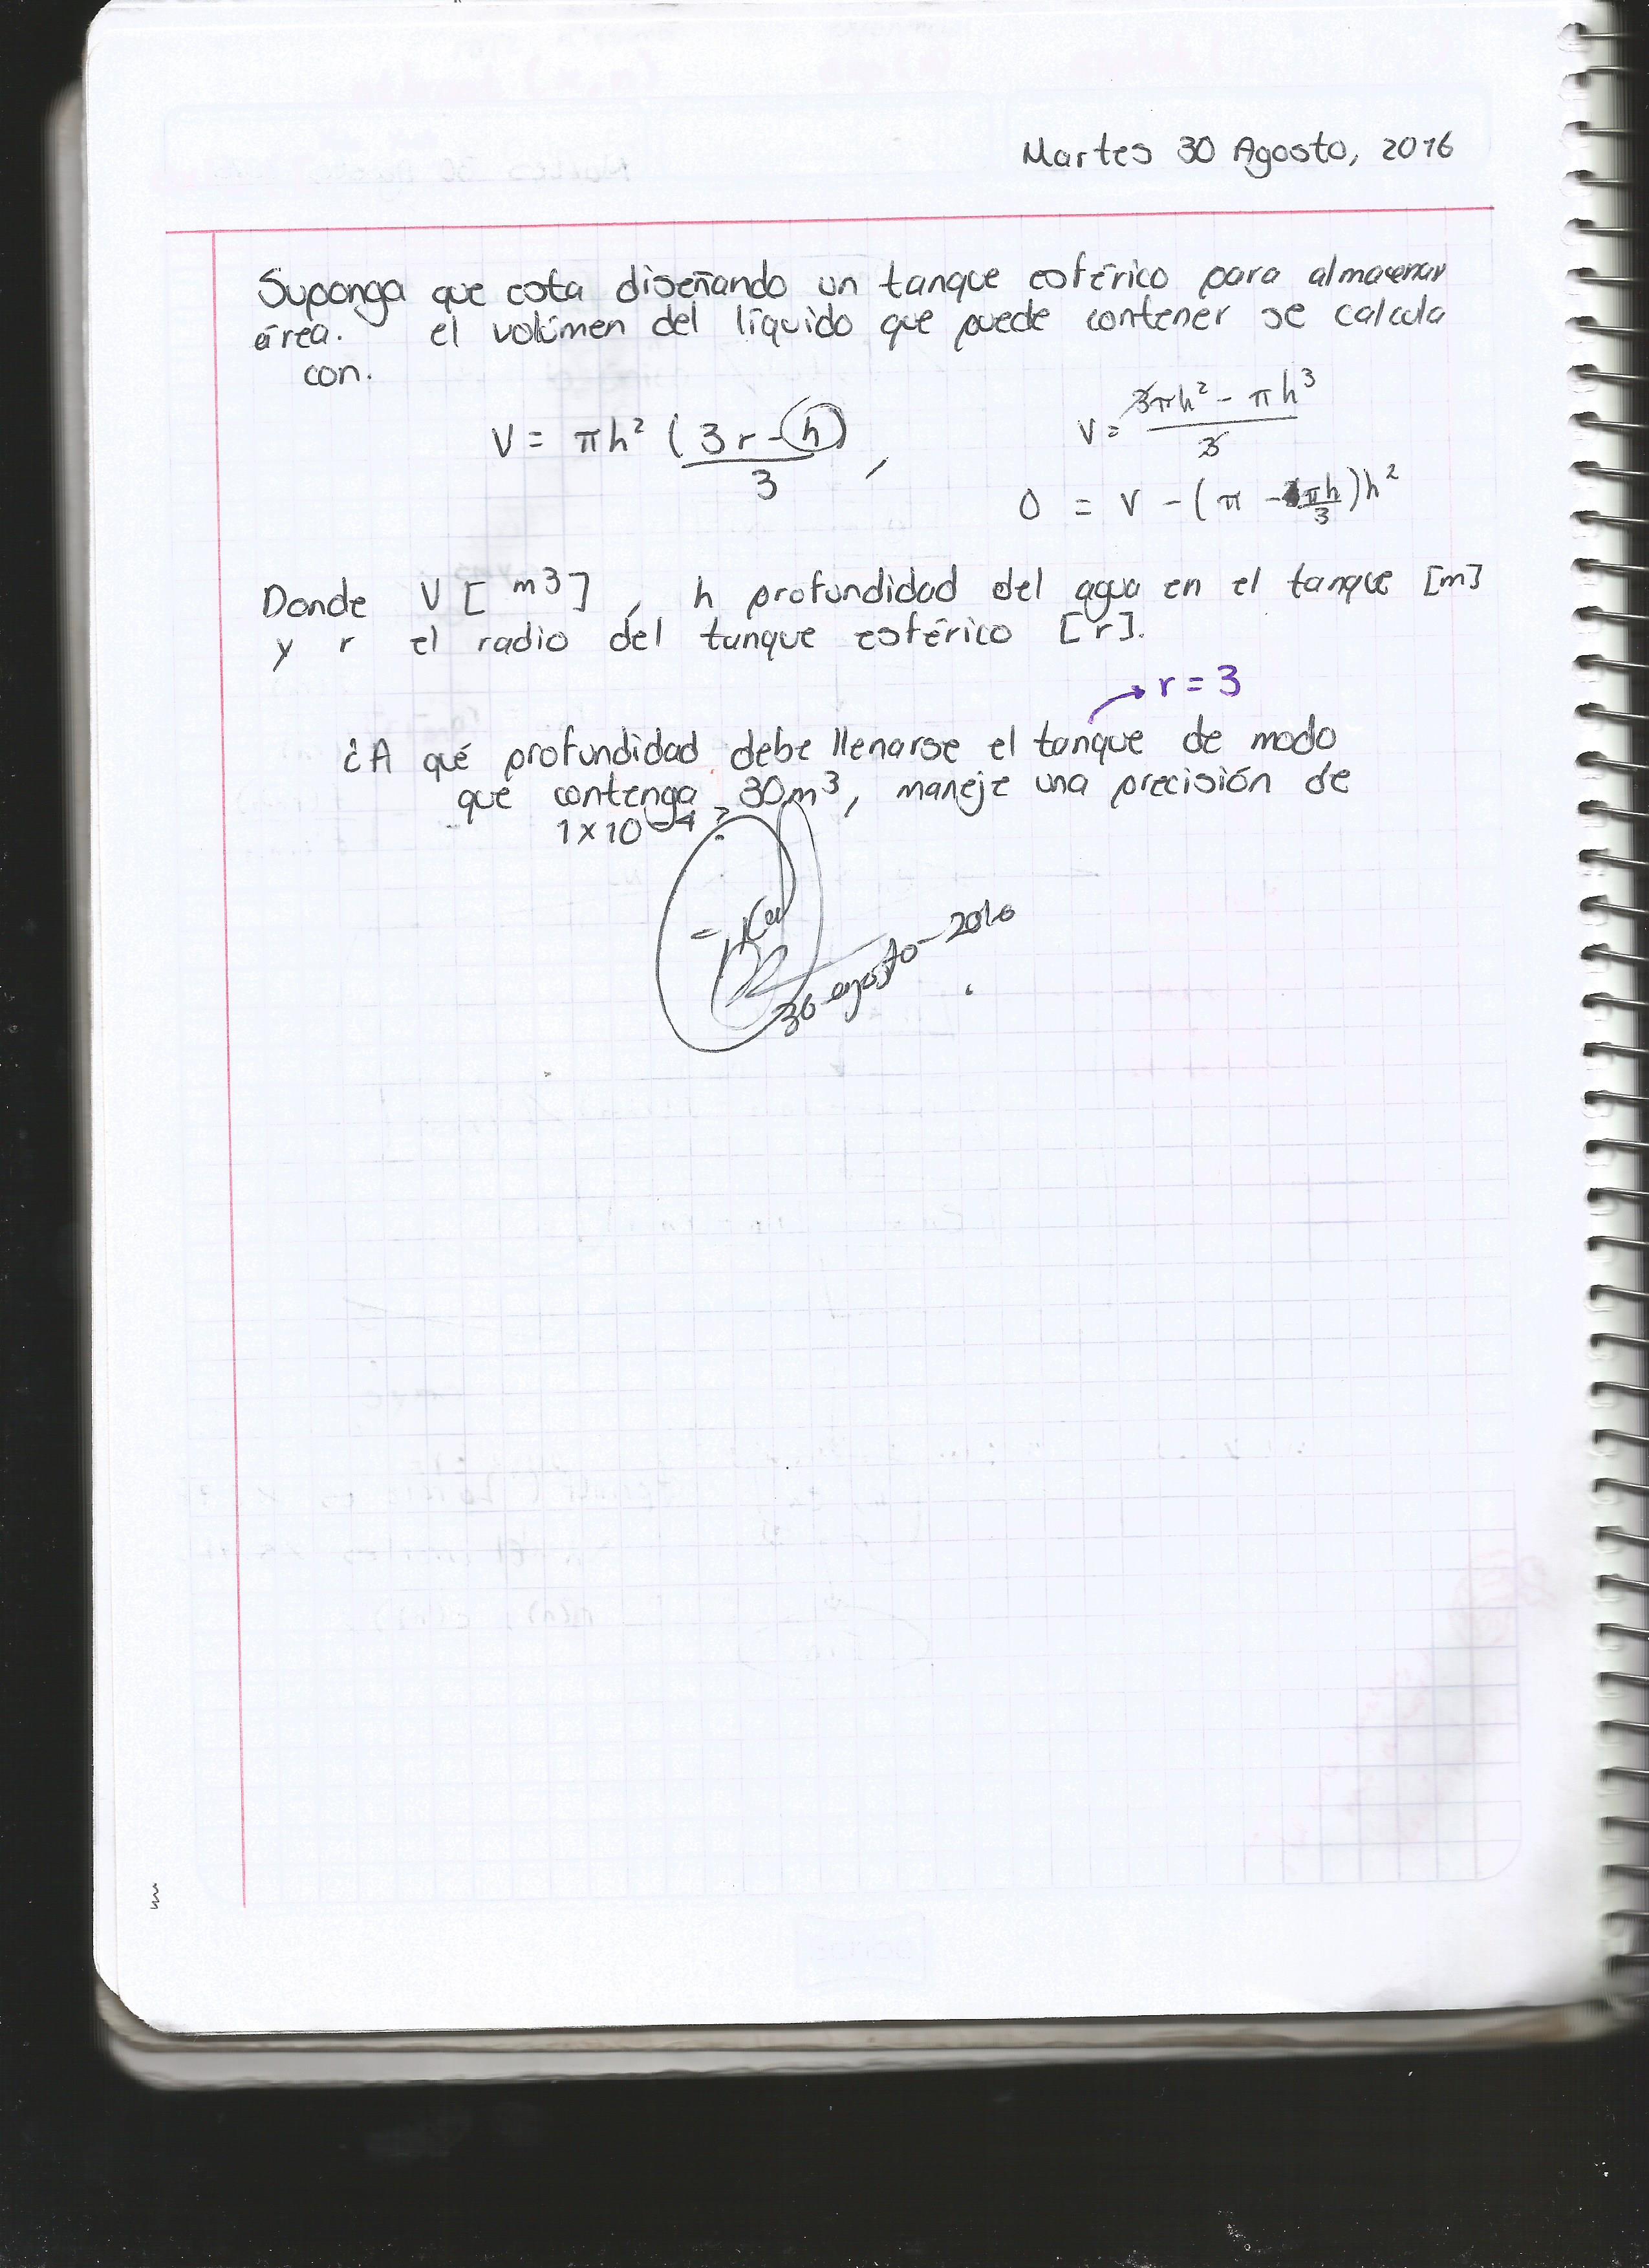 Martes 30 Agosto, 2016
Suponga que esta diseñando un tanque esférico para almacenar
área. el volúmen del líquido que puede contener se calcula
con.
V = πh² (3r-h)/3 ,
V = 3πh² - πh³/3
0 = V - (π - πh/3)h²
Donde V [m3] , h profundidad del agua en el tanque [m]
y r el radio del tanque esférico [r].
r = 3
¿A qué profundidad debe llenarse el tanque de modo
que contenga 30m³, maneje una precisión de
1x10-4?
30-agosto-2016